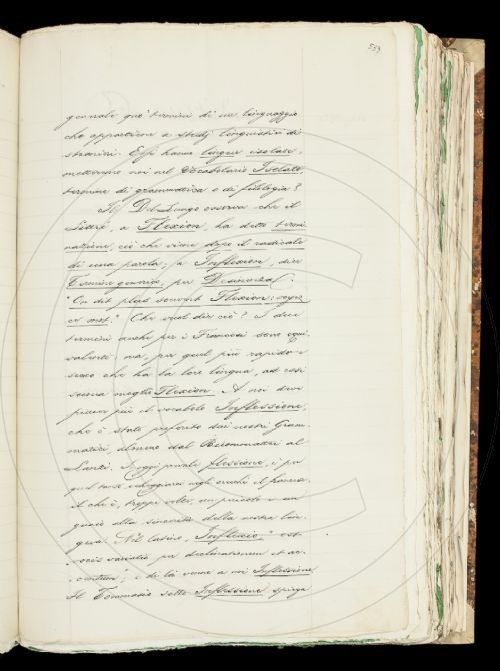 559
giornale que' termini di un linguaggio
che appartiene a studj linguistici di
stranieri. Essi hanno lingue isolate,
metteremo noi nel Vocabolario Isolato,
termine di grammatica o di filologia?
Il Del Lungo osserva che il
Littré, a Flexion, ha detto termi
nazione, ciò che viene dopo il radicale
di una parola; a Inflexion, dice
Termine generico, per Desinenza.
"On dit plus souvent Flexion; voyez
ce mot." Che vuol dir ciò? I due
termini anche per i Francesi sono equi
valenti; ma, per quel più rapido
suono che ha la loro lingua, ad essi
suona meglio Flexion. A noi deve
piacere più il vocabolo Inflessione,
che è stato preferito dai nostri Gram
matici, almeno dal Buommattei al
Nanni. In oggi prevale flessione, i per
quel tanto echeggiare negli orecchi il francese.
il che è, troppe volte, un pericolo e un
guaio alla sincerità della nostra lin
gua. Nel latino, "Inflexio" est
"vocis variatio, per declinationem et ac-
"centum"; e di là venne a noi Inflessione.
Il Tommaseo sotto Inflessione spiega